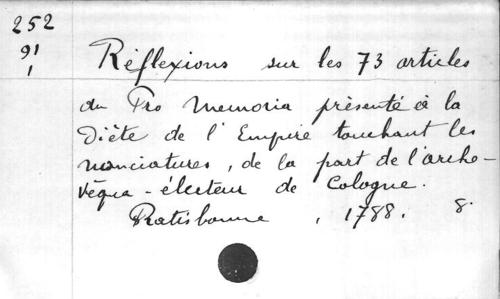 252
91
1
Réflexions sur les 73 articles
du Pro Memoria présenté à la
Diète de l'Empire touchant les
nonciatures, de la part de l'arche-
vêque-électeur de Cologne.
Ratisbonne, 1788. 8.